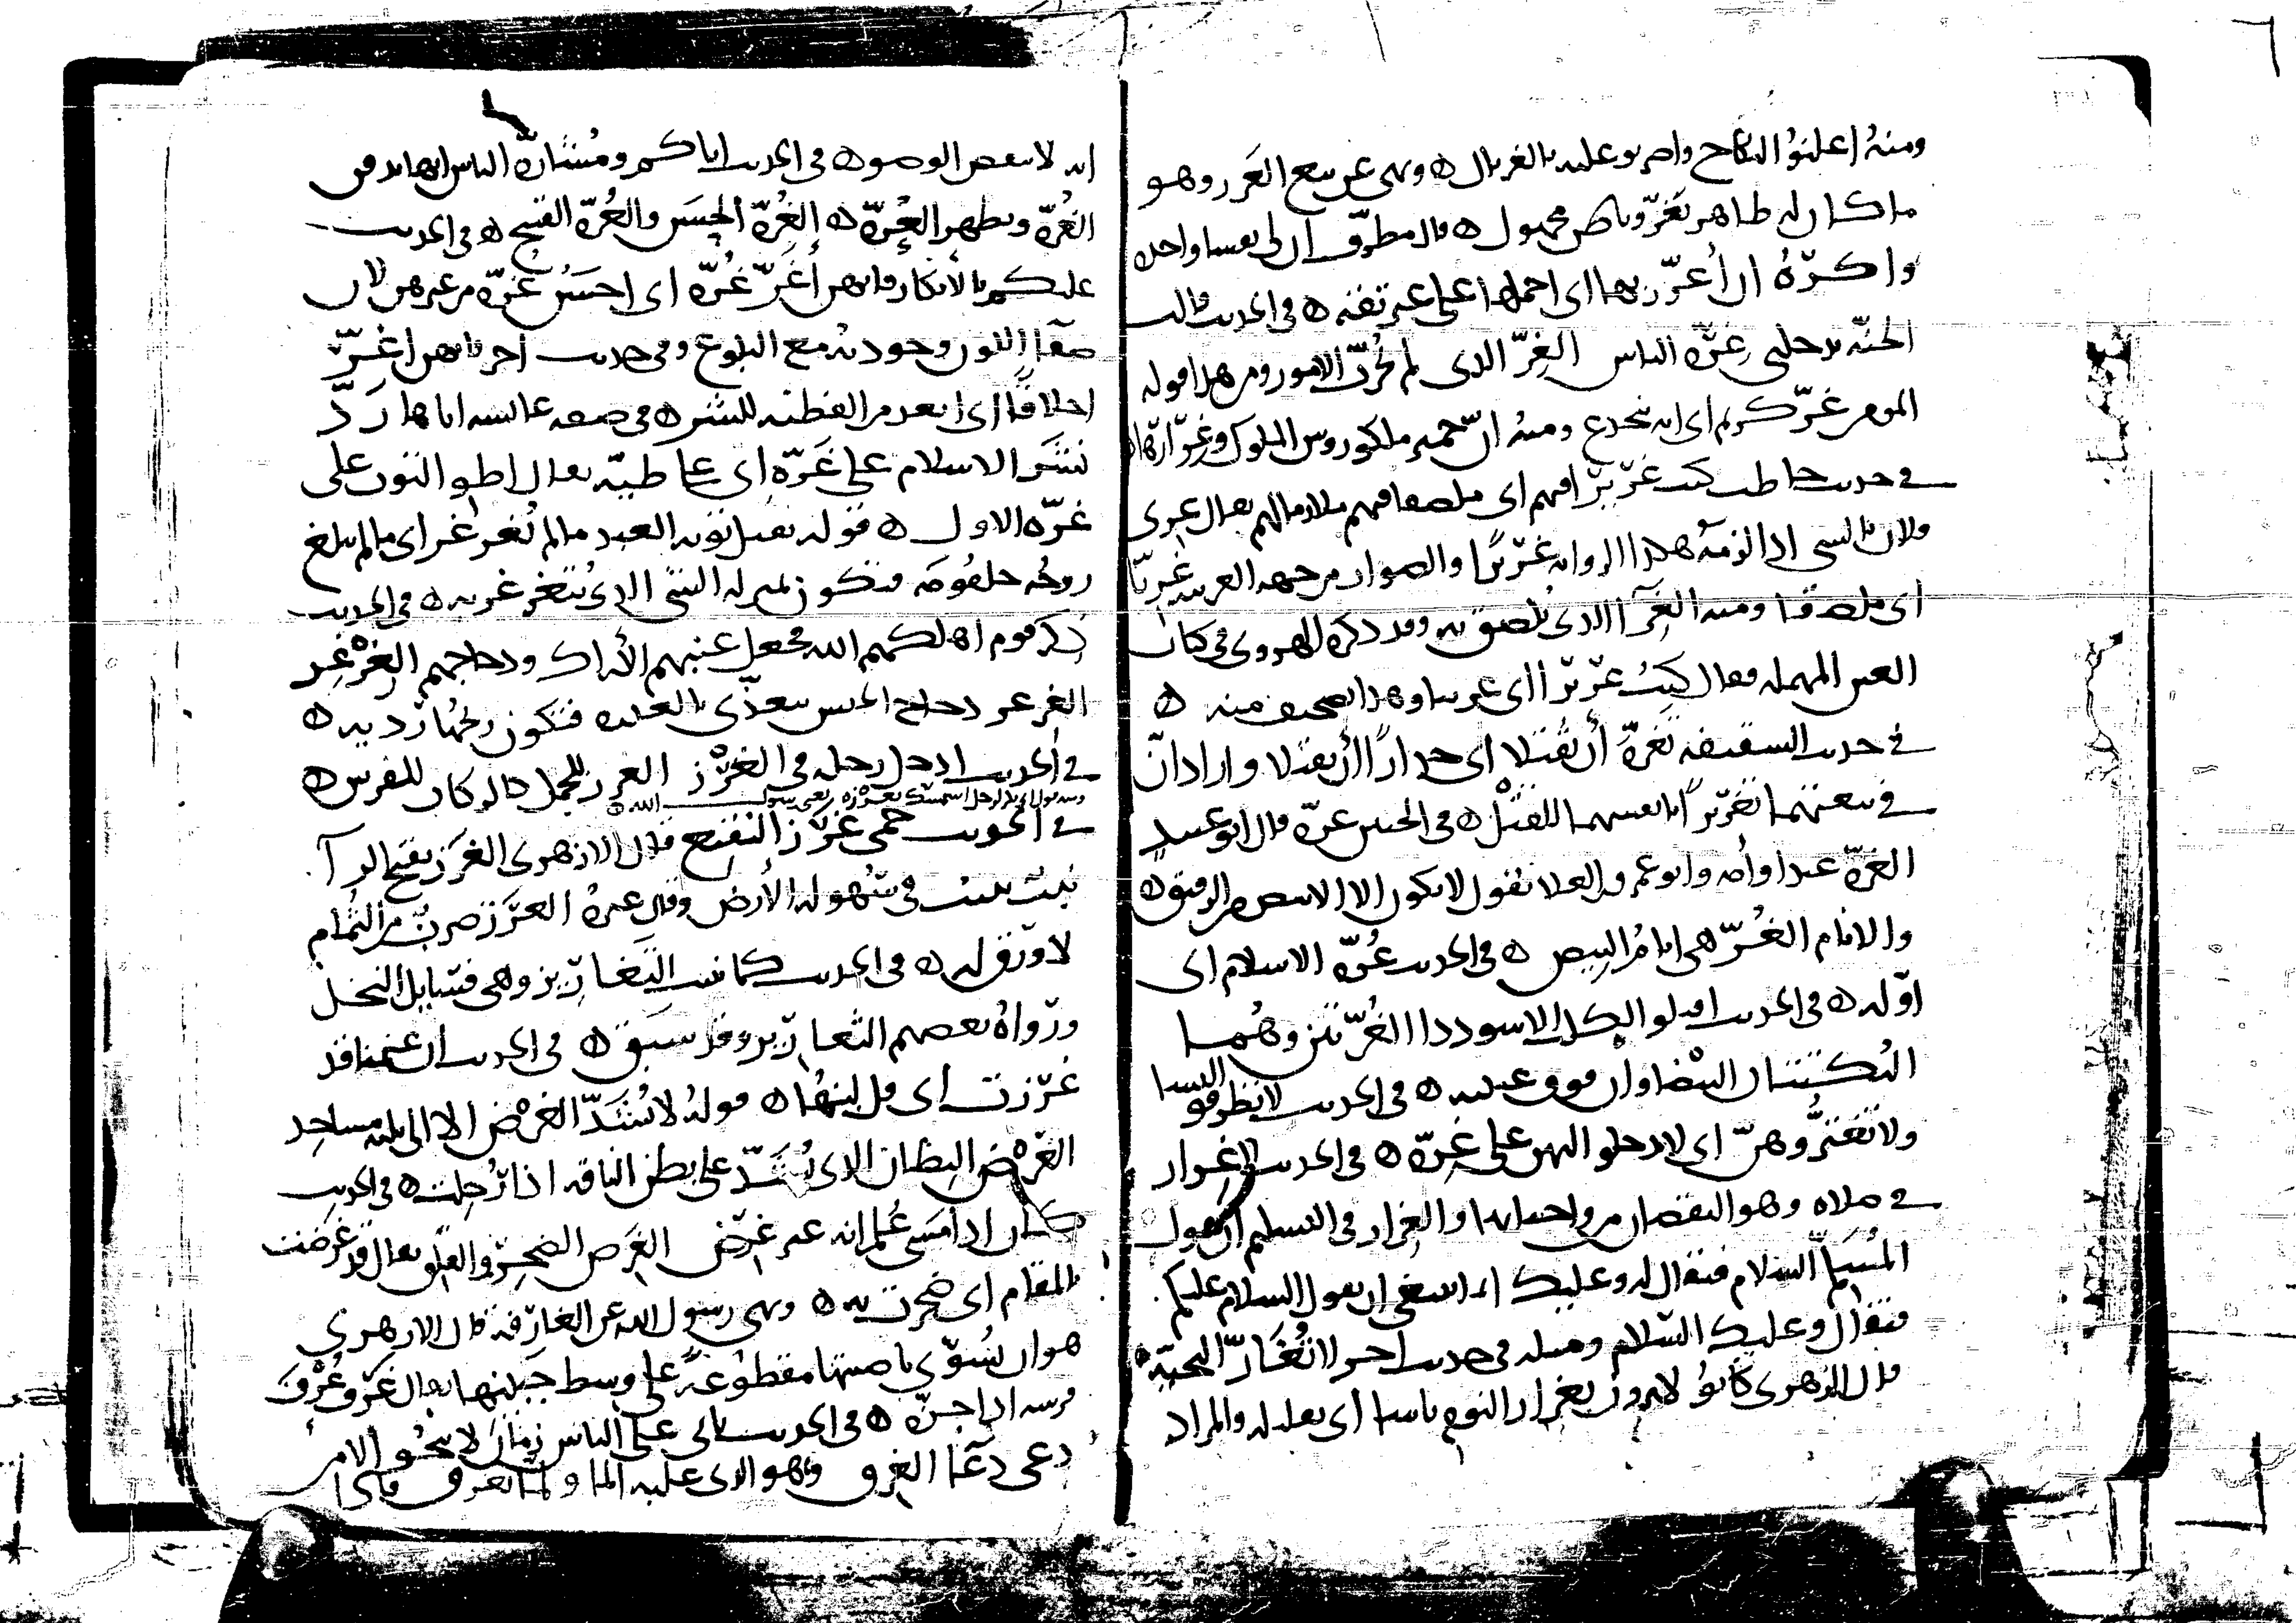 ومنهُ اعلنوُا النكاح واضربوا عليه بالغربال ه ونهى عن بيع الغَرر وهو
ما كان له ظاهر تَغرّ وباطن مجهول ه قال مطرّف ان لي نفسا واحدة
واكرَهُ ان أُغَرّر بها اي احملها على غير ثقة ه في الحديث قالت
الجنّة يدخلني غِرّة الناس الغِرّ الذي لم يُجرّب الامور ومن هذا قوله
المومن غرّ كريم اي انه ينخدع ومنه انّ حمير ملكوا روس الملوك وغِرارها
في حديث حاطب كنت غَرّيرًا فيهم اي ملصقا فيهم ملازما لهم يقال غري
فلان بالشي اذا لزمهُ هكذا الرواية غَرّيرًا والصواب من جهة العربية غَرِيًّا
اي ملصقا ومنه الغِرَآ الذي يُلصق به وقد ذكره الهروى في كتاب
العين المهملة وقال كنتُ عَزيزًا اي غريبا وهذا تصحيف منه ه
في حديث السقيفة تَغِرّةَ أن يُقتلا اي حِذارًا أن يقتلا واراد انّ
في بيعتهما تغريرًا بانفسهما للقتل ه في الجنين غرّة قال ابو عبيد
الغرّة عبد او أمة وابو عمرو بن العلا يقول لا يكون الا الابيض من الرقيق ه
والايام الغُرّ هي ايامُ البيض ه في الحديث غُرّة الاسلام اي
اوّله ه في الحديث اقتلوا الكلب الاسود ذا الغُرّتين وهُما
النُكتتان البيضاوان فوق عينيه ه في الحديث لا تطرقوا النسا
ولا تَغترُّوهنّ اي لا تدخلوا اليهن على غِرّة ه في الحديث لا غِرار
في صلاة وهو النقصان من واجباتها والغِرار في التسليم ان يقول
المُسَلِّم السّلام فيقال له وعليك انما ينبغي ان يقول السلام عليكم
فيقال وعليك السّلام ومثله في حديث اخر لا تُغَارّ التحيّة ه
قال الزهرى كانُوا لا يرون بغِرار النوم باسا اي بقليله والمراد
انه لا ينقض الوضوه في الحديث اياكم ومُشَارّة الناس انها تدفن
الغُرّة وتظهر العُرّة ه الغُرّة الحَسَن والعُرّة القبيح ه في الحديث
عليكم بالابكار فانهن أَغَرّ غُرّة اي احسَنُ غُرّة من غيرهن لان
صفَا اللون وجودته مع البلوغ وفي حديث آخر فانهن اغَرّ
اخلاقًا اي ابعد من الفطنة للشر ه في صفة عايشة اباها رَدّ
نَشَرَ الاسلام على غَرّه اي على طيّه يقال اطو الثوب على
غرّه الاول ه قوله تقبل توبة العبد ما لم يُغرغر اي ما لم يبلغ
روحُه حلقومَه فتكون بمنزلة الشي الذي يُتغرغر به ه في الحديث
ذكر قوم اهلكهم الله فجعل عنبهم الأراك ودجاجهم الغِرْغِر
الغرغر دجاج الحبش يتغذّى بالعذرة فتكون ريحُها رَديه ه
في الحديث ادخل رجله في الغَرْز الغرز للجمل كالركاب للفرس ه
ومنه قول ابي بكر لرجل استمسك بغرزه يعني رسول الله ه
في الحديث حمى غَرَز النقيع قال الازهرى الغرَز بفتح الرآ
نبت ينبت في سُهولة الأرض وقال غيرهُ الغَرَز ضربٌ من الثُمام
لا ورَق له ه في الحديث كما تنبت التغارِيز وهي فسايل النخل
ورَواهُ بعضهم الثعارير وقد سبق ه في الحديث ان غنمنا قد
غرَزت اي قل لبنُها ه قولهُ لا تُشَدّ الغُرُض الا الى ثلثة مساجد
الغَرْض البِطان الذي يُشَدّ على بطن الناقة اذا رُحِلت ه في الحديث
كان اذا مَشى عُلم انه غير غَرِض الغَرِض الضجِر والقلق يقال قد غَرضت
بالمقام اي ضجرت به ه ونهى رسول الله عن الغارفة قال الازهرى
هو ان تُسَوِّي ناصيتها مقطوعة على وسط جَبينها يقال غَرَف عُرْف
فرسه اذا جزّه ه في الحديث ياتي على الناس زمان لا ينجُو الا من
دعى دُعَآ الغرِق وهو الذي غلبه الما ولما يغرق فاذا